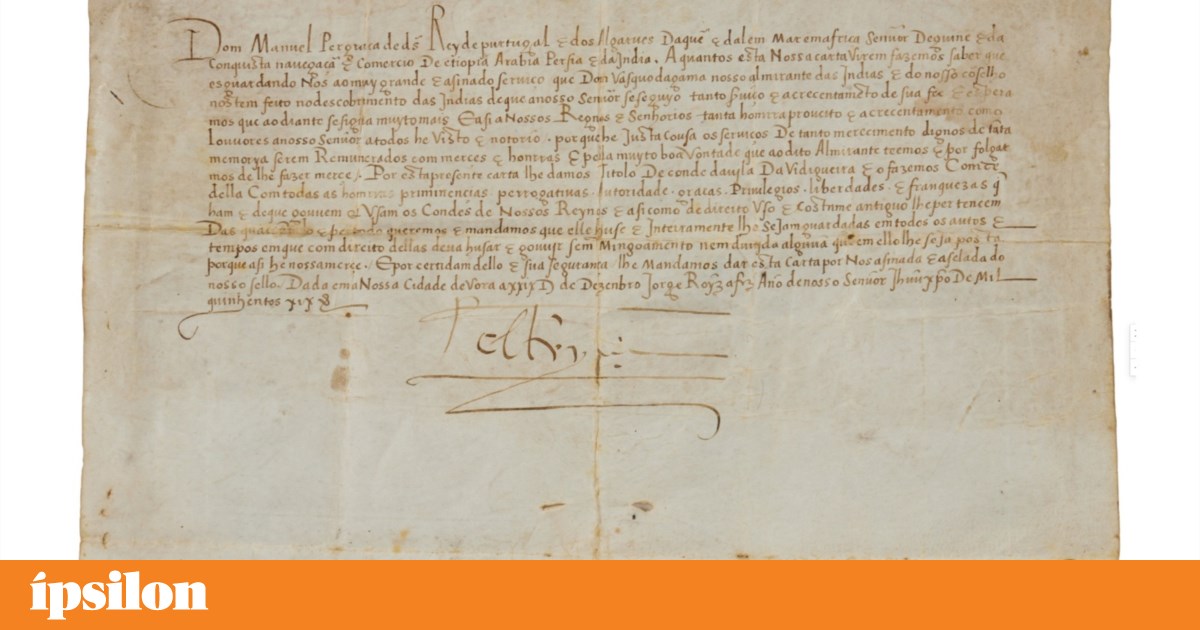 Dom Manuel Per graça de ds Rey de purtugal & dos Algarves Daquē & dalém Mar em africa Senũor De guine & da
Conquista navegaçã & Comercio De etiopia Arabia Persia & da India. A quantos esta Nossa carta Virem fazemos saber que
esguardando Nós ao muy grande & asinado serviço que Dom Vasquo dagama nosso almirante das Indias & do nosso cōselho
nos tem feito no descobrimento das Indias de que a nosso Senũor se seguyo tanto & acrecentamēto de sua fee & espera
mos que ao diante se sigua muyto mais E asi a Nossos Regnos & Senhorios tanta homrra proveito & acrecentamento como
louvores a nosso Senũor a todos he Visto & notorio. porque he Justa cousa os serviços De tanto merecimento dignos de tāta
memorya serem Remunerados com merces & honrras & pella muyto boa Vontade que ao dito Almirante teemos & por folgar
mos de lhe fazer merce. Por esta presente carta lhe damos Titolo De conde da vila Da Vidigueira & o fazemos Comde
della Com todas as homrras priminencias perrogativas Autoridade. graças. Privilegios. liberdades. & franquezas q̃
ham & de que gouvem & Usam os Condes de Nossos Reynos & asi como de direito Uso & Costume antiguo lhe pertencem
Das quaes & queremos & mandamos que elle huse & Inteiramente lhe Sejam guardadas em todos os autos &
tempos em que com direito dellas deva husar & gouvir sem Mingoamento nem duvida alguũa que em ello lhe seja posta
porque asi he nossa merçe. E por certidam dello & sua segurança lhe Mandamos dar esta Carta por Nos asinada & aselada do
nosso sello. Dada em a Nossa Cidade de Vora a XXIX D de Dezenbro Jorge Royz a fez Año de nosso Senũor Jhuũ xpō De Mil
quinhentos xix
ípsilon